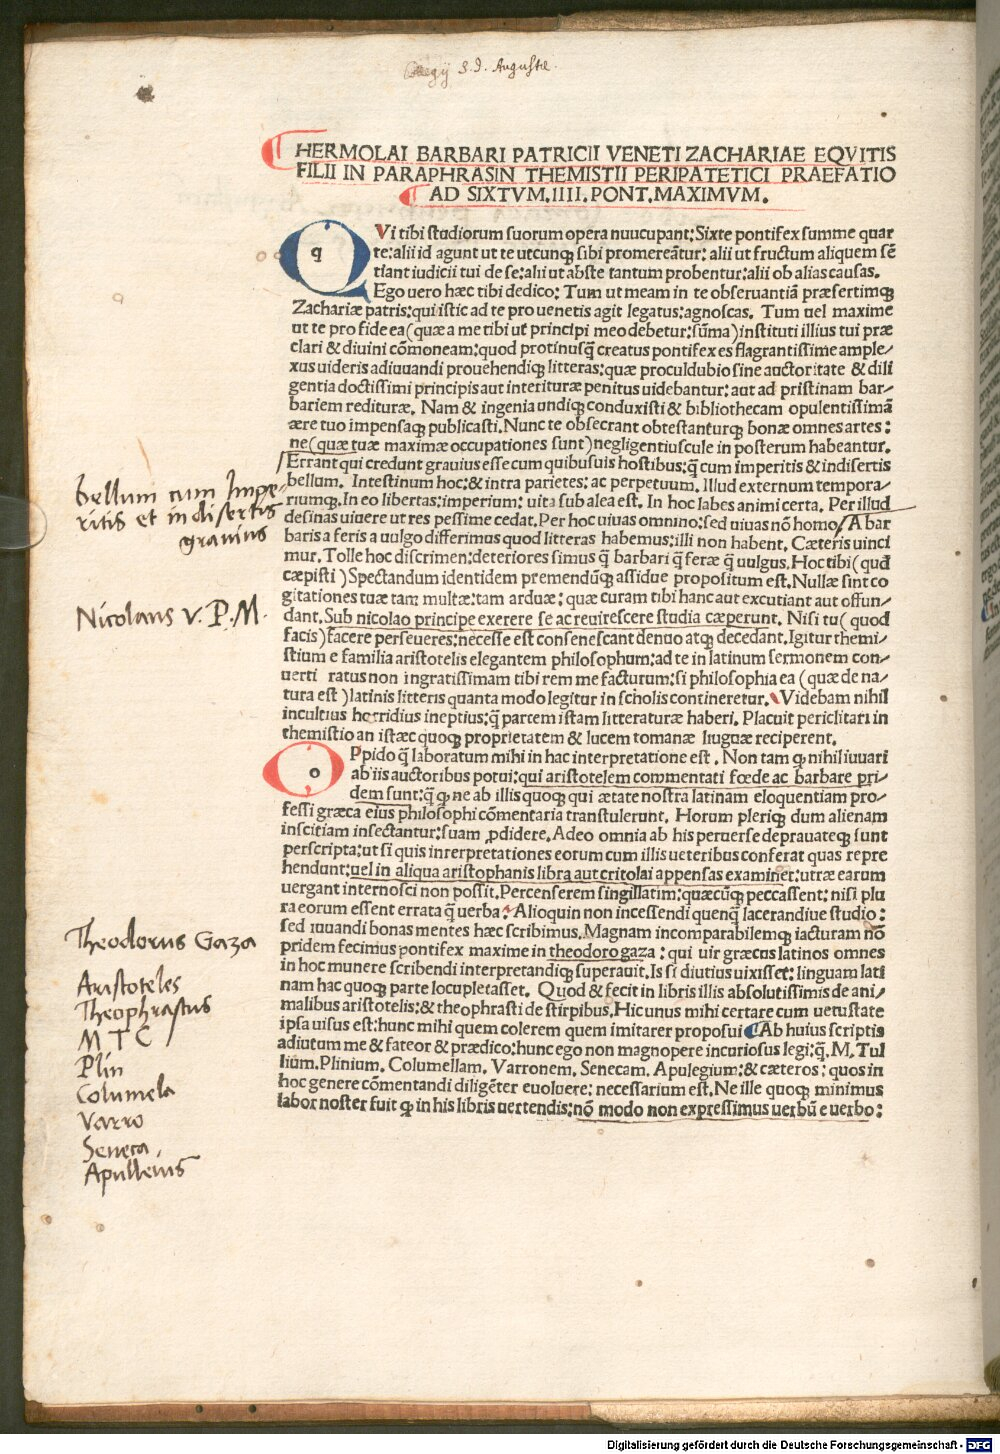 s. d. Auguste.
HERMOLAI BARBARI PATRICII VENETI ZACHARIAE EQVITIS
FILII IN PARAPHRASIN THEMISTII PERIPATETICI PRAEFATIO
AD SIXTVM.IIII.PONT.MAXIMVM.
QVi tibi studiorum suorum opera nuucupant: Sixte pontifex summe quar
te: alii id agunt ut te utcunq; sibi promereātur: alii ut fructum aliquem sē
tiant iudicii tui de se: alii ut abste tantum probentur: alii ob alias causas.
Ego uero hæc tibi dedico: Tum ut meam in te obseruantiā præsertimq;
Zachariæ patris: qui istic ad te pro uenetis agit legatus: agnoscas. Tum uel maxime
ut te pro fide ea (quæ a me tibi ut principi meo debetur: sūma) instituti illius tui præ
clari & diuini cōmoneam: quod protinusq̄ creatus pontifex es flagrantissime ample/
xus uideris adiuuandi prouehendiq; litteras: quæ proculdubio sine auctoritate & dili
gentia doctissimi principis aut interituræ penitus uidebantur: aut ad pristinam bar/
bariem redituræ. Nam & ingenia undiq; conduxisti & bibliothecam opulentissimā
ære tuo impensaq; publicasti. Nunc te obsecrant obtestanturq; bonæ omnes artes:
ne (quæ tuæ maximæ occupationes sunt) negligentiuscule in posterum habeantur.
Errant qui credunt grauius esse cum quibusuis hostibus: q̄ cum imperitis & indisertis
bellum. Intestinum hoc: & intra parietes: ac perpetuum. Illud externum tempora/
riumq;. In eo libertas: imperium: uita sub alea est. In hoc labes animi certa. Per illud
desinas uiuere ut res pessime cedat. Per hoc uiuas omnino: sed uiuas nō homo/ A bar
baris a feris a uulgo differimus quod litteras habemus: illi non habent. Cæteris uinci
mur. Tolle hoc discrimen: deteriores simus q̄ barbari q̄ feræ q̄ uulgus. Hoc tibi (quod
cæpisti) Spectandum identidem premendūq; assidue propositum est. Nullæ sint co
gitationes tuæ tam multæ: tam arduæ: quæ curam tibi hanc aut excutiant aut offun/
dant. Sub nicolao principe exerere se ac reuirescere studia cæperunt. Nisi tu (quod
facis) facere perseueres: necesse est consenescant denuo atq; decedant. Igitur themi/
stium e familia aristotelis elegantem philosophum: ad te in latinum sermonem con/
uerti ratus non ingratissimam tibi rem me facturum: si philosophia ea (quæ de na/
tura est) latinis litteris quanta modo legitur in scholis contineretur. Videbam nihil
incultius horridius ineptius: q̄ parcem istam litteraturæ haberi. Placuit periclitari in
themistio an istæc quoq; proprietatem & lucem tomanæ liuguæ reciperent.
OPpido q̄ laboratum mihi in hac interpretatione est. Non tam q; nihil iuuari
ab iis auctoribus potui: qui aristotelem commentati fœde ac barbare pri/
dem sunt: q̄ q; ne ab illis quoq; qui ætate nostra latinam eloquentiam pro/
fessi græca eius philosophi cōmentaria transtulerunt. Horum pleriq; dum alienam
inscitiam insectantur: suam ꝓdidere. Adeo omnia ab his peruerse deprauateq; sunt
perscripta: ut si quis inrerpretationes eorum cum illis ueteribus conferat quas repre
hendunt: uel in aliqua aristophanis libra aut critolai appensas examinet: utræ earum
uergant internosci non possit. Percenserem singillatim: quæcūq; peccassent: nisi plu
ra eorum essent errata q̄ uerba. Alioquin non incessendi quenq̄ lacerandiue studio:
sed iuuandi bonas mentes hæc scribimus. Magnam incomparabilemq; iacturam nō
pridem fecimus pontifex maxime in theodoro gaza: qui uir græcus latinos omnes
in hoc munere scribendi interpretandiq; superauit. Is si diutius uixisset: linguam lati
nam hac quoq; parte locupletasset. Quod & fecit in libris illis absolutissimis de ani/
malibus aristotelis: & theophrasti de stirpibus. Hic unus mihi certare cum uetustate
ipsa uisus est: hunc mihi quem colerem quem imitarer proposui Ab huius scriptis
adiutum me & fateor & prædico: hunc ego non magnopere incuriosus legi: q̄. M. Tul
lium. Plinium. Columellam. Varronem. Senecam. Apulegium: & cæteros: quos in
hoc genere cōmentandi diligēter euoluere: necessarium est. Ne ille quoq; minimus
labor noster fuit q; in his libris uertendis: nō modo non expressimus uerbū e uerbo:
bellum cum Impe
ritis et indisertis
grauius
Nicolaus V. P. M.
Theodorus Gaza
Aristoteles
Theophrastus
M T C
Plin
Columela
Varro
Seneca.
Apulleius
Digitalisierung gefördert durch die Deutsche Forschungsgemeinschaft - DFG